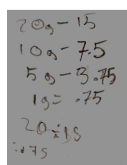 20g - 15
10g - 7.5
5g - 3.75
1g = .75
20 ÷ 15